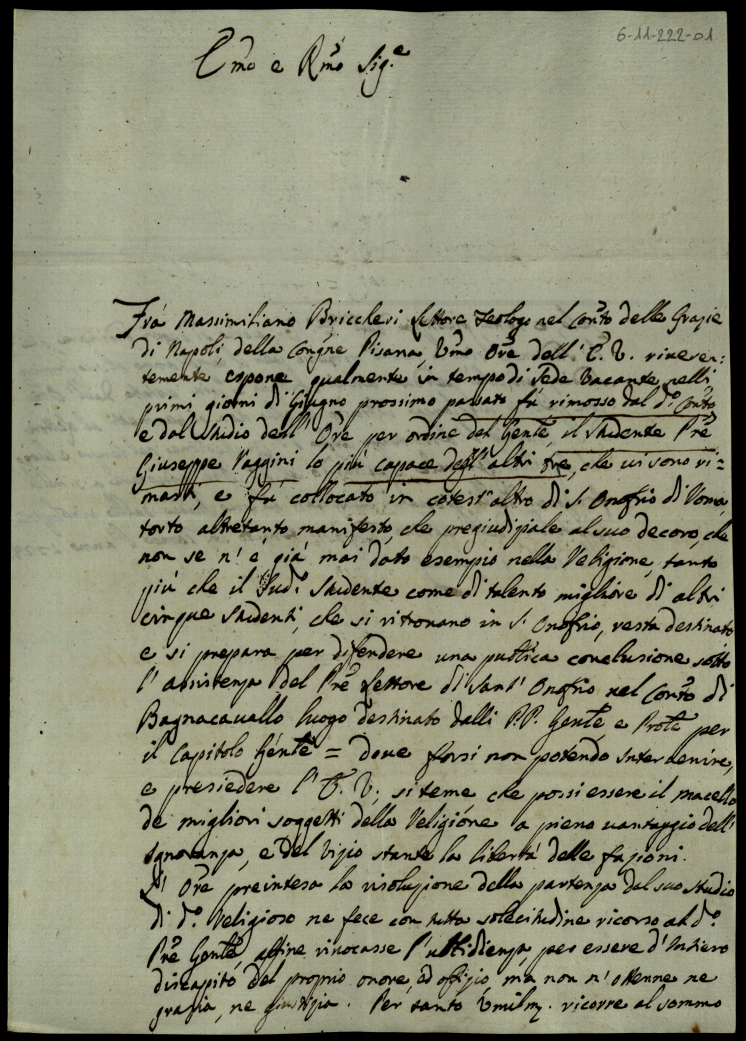 6-11-222-01
Emo e Rmo Sig.e
Frà Massimiliano Briccleri Lettore Teologo nel Conto delle Grazie
di Napoli, della Congne Pisana, Umo Ore dell' E. V. riveren:
temente espone qualmente in tempo di Sede Vacante nelli
primi giorni di Giugno prossimo passato fù rimosso dal d.o Conto
e dal studio dell' Ore per ordine del Gente, il studente Pre
Giuseppe Vaggini lo più capace degl' altri tre, che vi sono ri=
masti, e fù collocato in cotest' altro di S. Onofrio di Roma,
torto altretanto manifesto, che pregiudiziale al suo decoro, che
non se n' è già mai dato esempio nella Religione, tanto
più che il sud.o studente come di talento migliore di altri
cinque studenti, che si ritrovano in S. Onofrio, resta destinato
e si prepara per difendere una publica conclusione sotto
l' assistenza del Pre Lettore di Sant' Onofrio nel Conto di
Bagnacavallo luogo destinato dalli P.P. Gente, e Prote per
il Capitolo Gente = dove forsi non potendo intervenire,
e presiedere l' E. V., si teme che possi essere il macello
de migliori soggetti della Religione a pieno vantaggio dell'
Ignoranza, e del Vizio stante la libertà delle fazioni.
L' Ore preintesa la risoluzione della partenza dal suo studio
di d.o Religioso ne fece con tutta solecitudine ricorso al d.o
Pre Gente affine rivocasse l' ubbidienza, per essere d' intiero
discapito del proprio onore, ed offizio, ma non n' ottenne ne
grazia, ne giustizia. Per tanto Umilm. ricorre al sommo